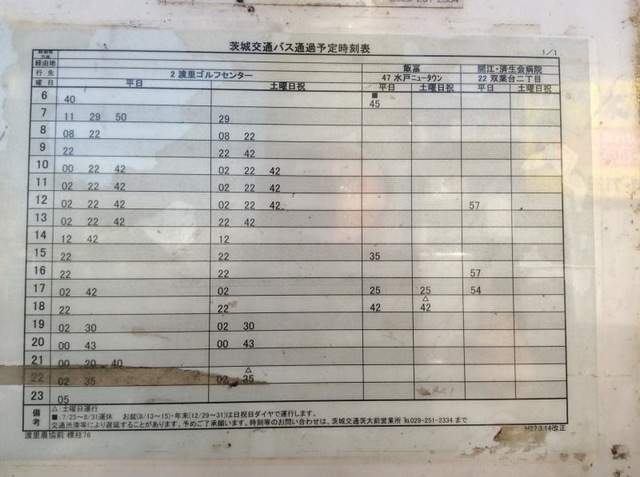 茨城交通バス通過予定時刻表
1/1
経由地 飯富 開江・済生会病院
行先 2 渡里ゴルフセンター 47 水戸ニュータウン 22 双葉台二丁目
曜日 平日 土曜日祝 平日 土曜日祝 平日 土曜日祝
6 40 ■45
7 11 29 50 29
8 08 22 08 22
9 22 22 42
10 00 22 42 02 22 42
11 02 22 42 02 22 42
12 02 22 42 02 22 42 57
13 02 22 42 22 42
14 12 42 12
15 22 22 35
16 22 22 57
17 02 42 02 25 25 54
18 22 22 42 △42
19 02 30 02 30
20 00 43 00 43
21 00 20 40
22 02 35 02 △35
23 05
備考 △:土曜日運行
■:7/25~8/31運休 お盆(8/13~15)・年末(12/29~31)は日祝日ダイヤで運行します。
交通渋滞等により遅延することがあります。予めご了承願います。時刻等のお問い合わせは、茨城交通茨大前営業所 ℡029-251-2334 まで
渡里農協前 標柱76 H27.3.14改正